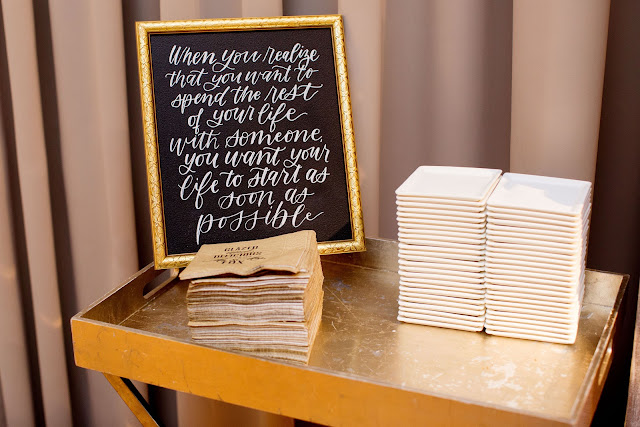 When you realize
that you want to
spend the rest
of your life
with someone,
you want your
life to start as
soon as
possible
GLAZED
DELICIOUS